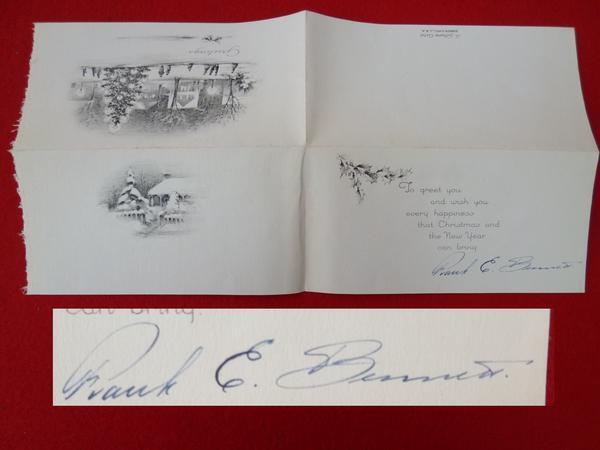 Greetings
To greet you
and wish you
every happiness
that Christmas and
the New Year
can bring
Frank E. Bennett.
can bring.
Frank E. Bennett.